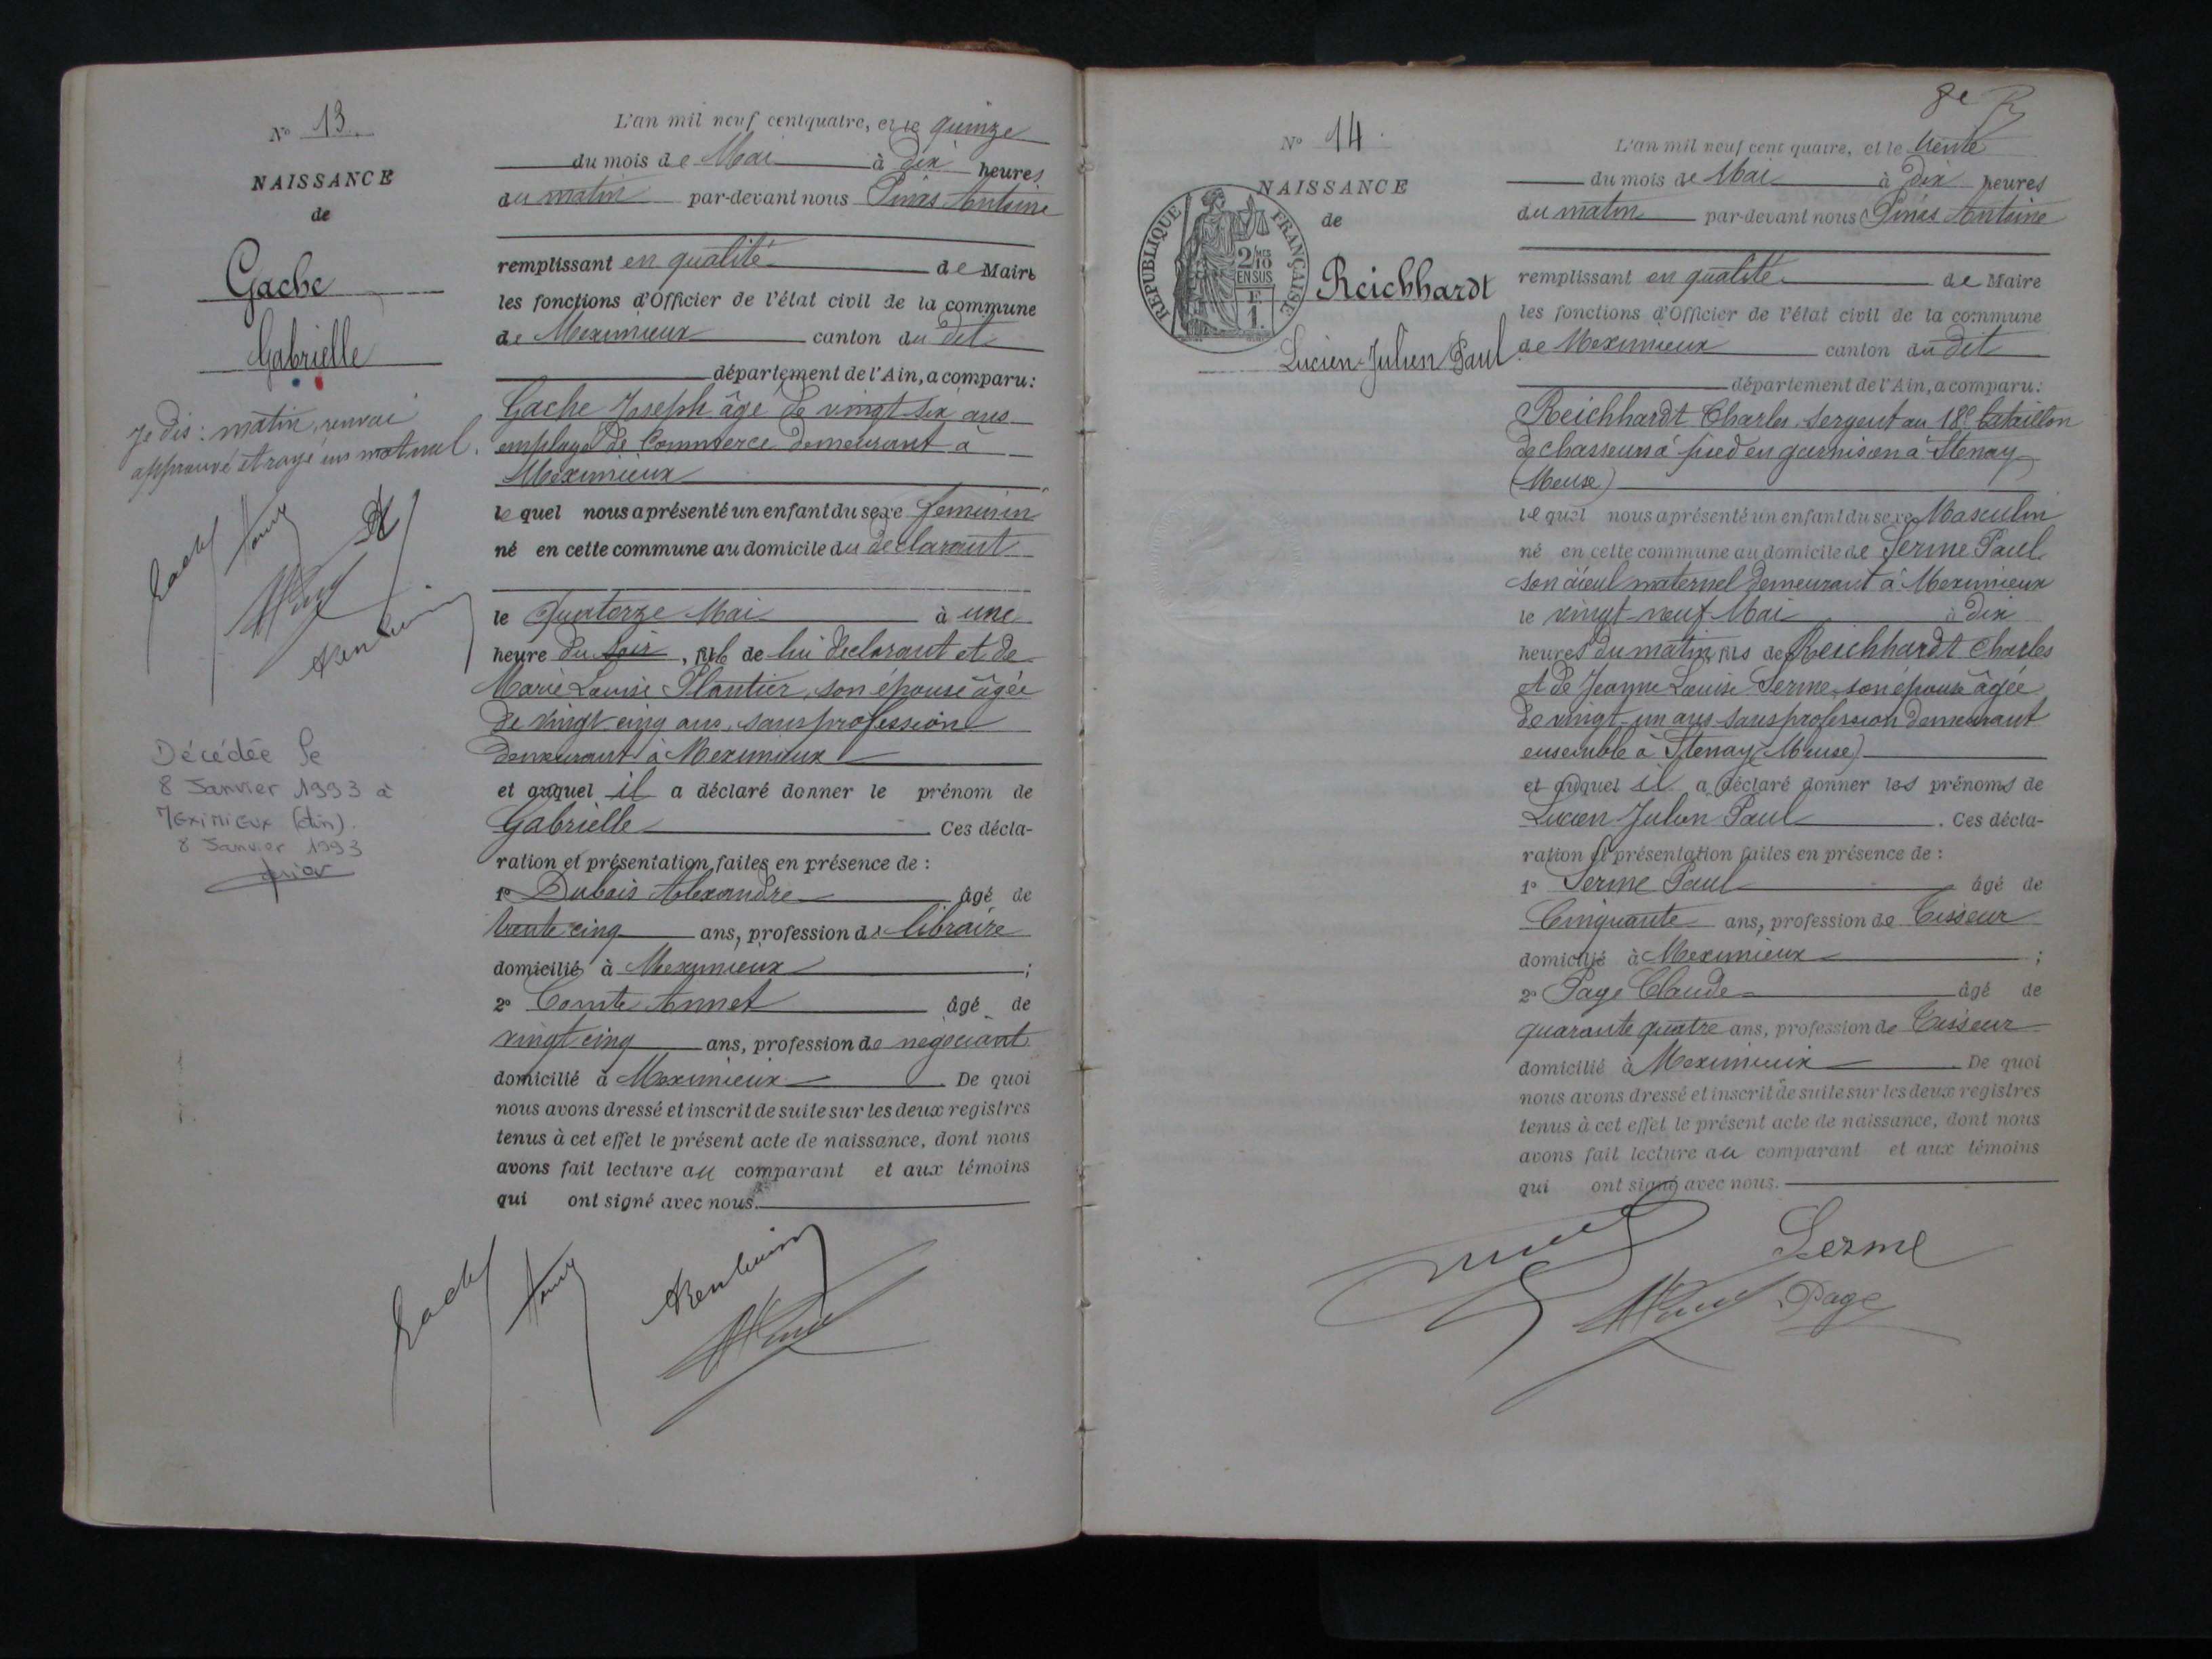 N° 13
NAISSANCE
de
Gache
Gabrielle
Je dis : matin, renvoi
approuvé et rayé un mot nul.
Décédée le
8 Janvier 1993 à
Meximieux (Ain).
8 Janvier 1993
L'an mil neuf cent quatre, et le quinze
du mois de Mai à dix heures
du matin par-devant nous Antoine
remplissant en qualité de Maire
les fonctions d'Officier de l'état civil de la commune
de Meximieux canton du dit
département de l'Ain, a comparu:
Gache Joseph âgé de vingt six ans
employé de Commerce demeurant à
Meximieux
lequel nous a présenté un enfant du sexe féminin
né en cette commune au domicile du déclarant
le Quatorze Mai à une
heure du soir, fille de lui déclarant et de
Marie Louise Plantier, son épouse âgée
de vingt cinq ans, sans profession
demeurant à Meximieux
et auquel il a déclaré donner le prénom de
Gabrielle Ces décla-
ration et présentation faites en présence de :
1° Dubois Alexandre âgé de
trente cinq ans, profession de libraire
domicilié à Meximieux ;
2° Comte Annet âgé de
vingt cinq ans, profession de négociant
domicilié à Meximieux De quoi
nous avons dressé et inscrit de suite sur les deux registres
tenus à cet effet le présent acte de naissance, dont nous
avons fait lecture au comparant et aux témoins
qui ont signé avec nous.
Gache
8e
N° 14
NAISSANCE
de
RÉPUBLIQUE FRANÇAISE
2/10
EN SUS
F.
1.
Reichhardt
Lucien-Julien Paul
L'an mil neuf cent quatre, et le trente
du mois de Mai à dix heures
du matin par-devant nous Antoine
remplissant en qualité de Maire
les fonctions d'Officier de l'état civil de la commune
de Meximieux canton du dit
département de l'Ain, a comparu:
Reichhardt Charles, Sergent au 18e bataillon
de chasseurs à pied en garnison à Stenay
(Meuse)
lequel nous a présenté un enfant du sexe Masculin
né en cette commune au domicile de Serme Paul
son aïeul maternel demeurant à Meximieux
le vingt-neuf Mai à dix
heures du matin, fils de Reichhardt Charles
et de Jeanne Louise Serme, son épouse âgée
de vingt-un ans sans profession demeurant
ensemble à Stenay (Meuse)
et auquel il a déclaré donner les prénoms de
Lucien Julien Paul. Ces décla-
ration et présentation faites en présence de :
1° Serme Paul âgé de
Cinquante ans, profession de Tisseur
domicilié à Meximieux ;
2° Page Claude âgé de
quarante quatre ans, profession de Tisseur
domicilié à Meximieux De quoi
nous avons dressé et inscrit de suite sur les deux registres
tenus à cet effet le présent acte de naissance, dont nous
avons fait lecture au comparant et aux témoins
qui ont signé avec nous.
Serme
Page